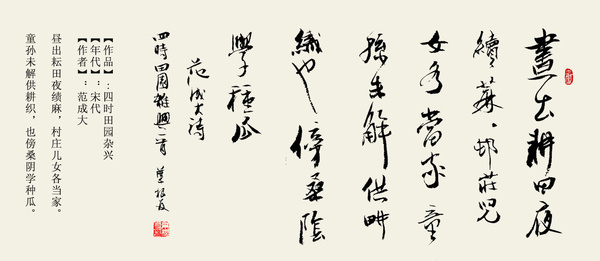 晝出耕田夜
績蔴邨莊兒
女各當家童
孫未解供畊
織也傍桑陰
學種瓜
范成大詩
四時田園雜興一首
【作品】:四时田园杂兴
【年代】:宋代
【作者】:范成大
昼出耘田夜绩麻，村庄儿女各当家。
童孙未解供耕织，也傍桑阴学种瓜。